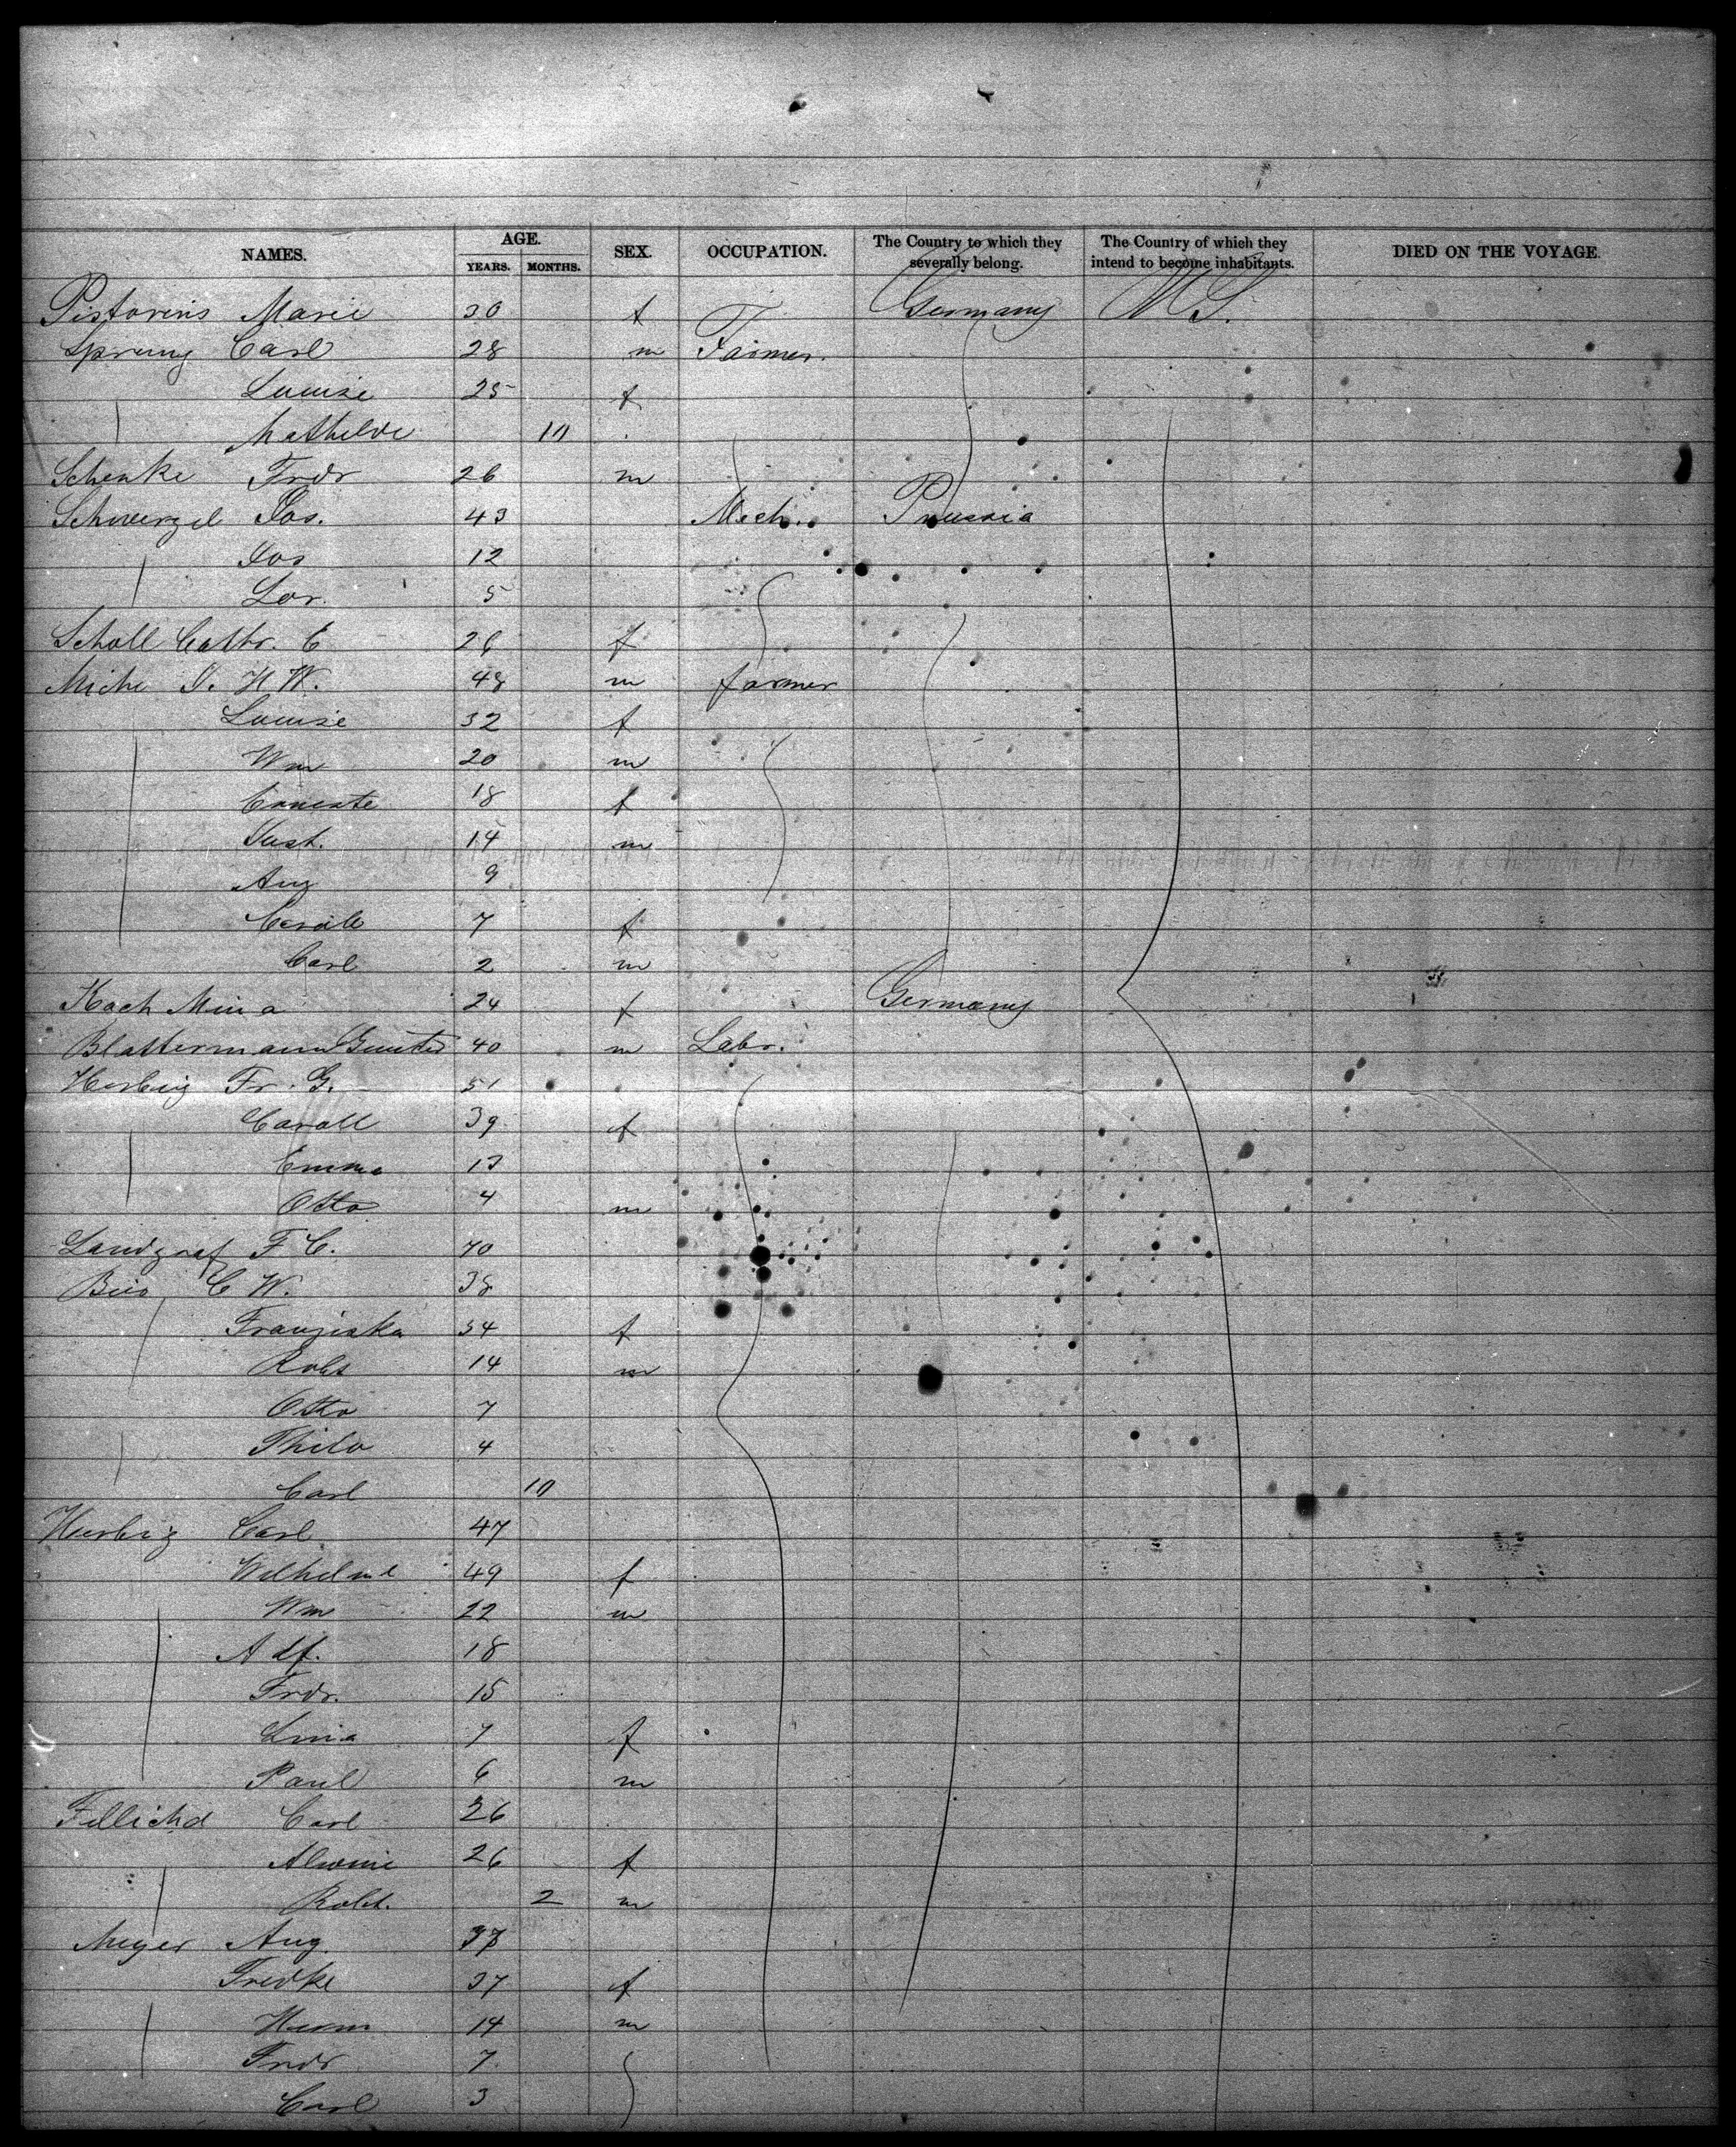 NAMES. AGE. YEARS. MONTHS. SEX. OCCUPATION. The Country to which they severally belong. The Country of which they intend to become inhabitants. DIED ON THE VOYAGE.
Pistorius Marie 30 f Germany U.S.
Sprung Carl 28 m Farmer.
Louise 25 f
Mathilde 10
Schenke Frdr 26 m
Schwerzel Jos. 43 Mech. Prussia
Jos 12
Lor. 5
Scholl Cathr. C 26 f
Miche J. H W. 48 m farmer
Louise 32 f
Wm 20 m
18 f
Just. 14 m
Aug 9
7 f
Carl 2 m
Koch Mina 24 f Germany
Blattermann Gunter 40 m Labr.
Herbig Fr. G. 51
Caroll 39 f
Emma 13
Otto 4 m
Landgraf F C. 70
C W. 38
Franziska 34 f
Robt 14 m
Otto 7
Thilo 4
Carl 10
Herbig Carl 47
Wilhelme 49 f
Wm 22 m
Adf. 18
Frdr. 15
Lina 7 f
Paul 6 m
Carl 26
Alwine 26 f
Robt. 2 m
Meyer Aug. 38
Fredke 37 f
Herm 14 m
Frdr 7
Carl 3